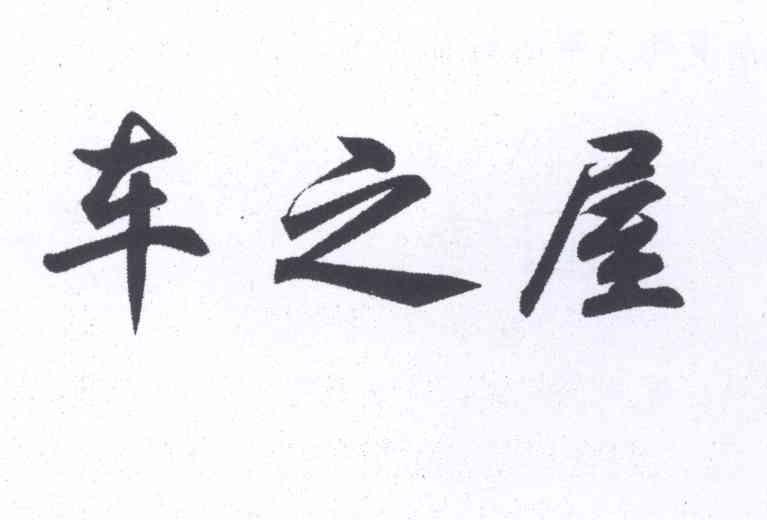 车之屋